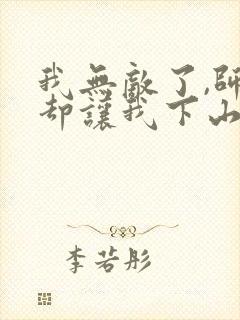 我無敵了,師
却讓我下山
李若彤